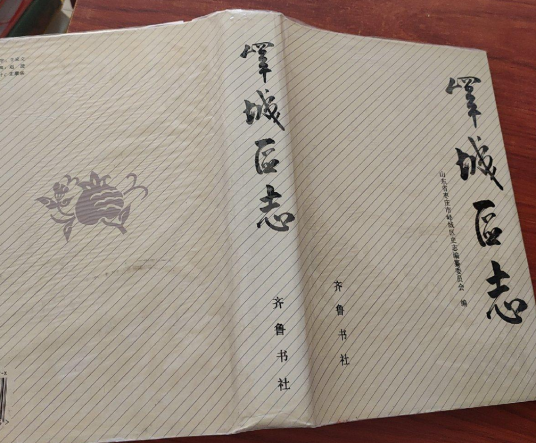 峄城区志
山东省枣庄市峄城区史志编纂委员会 编
齐鲁书社
峄城区志
齐鲁书社